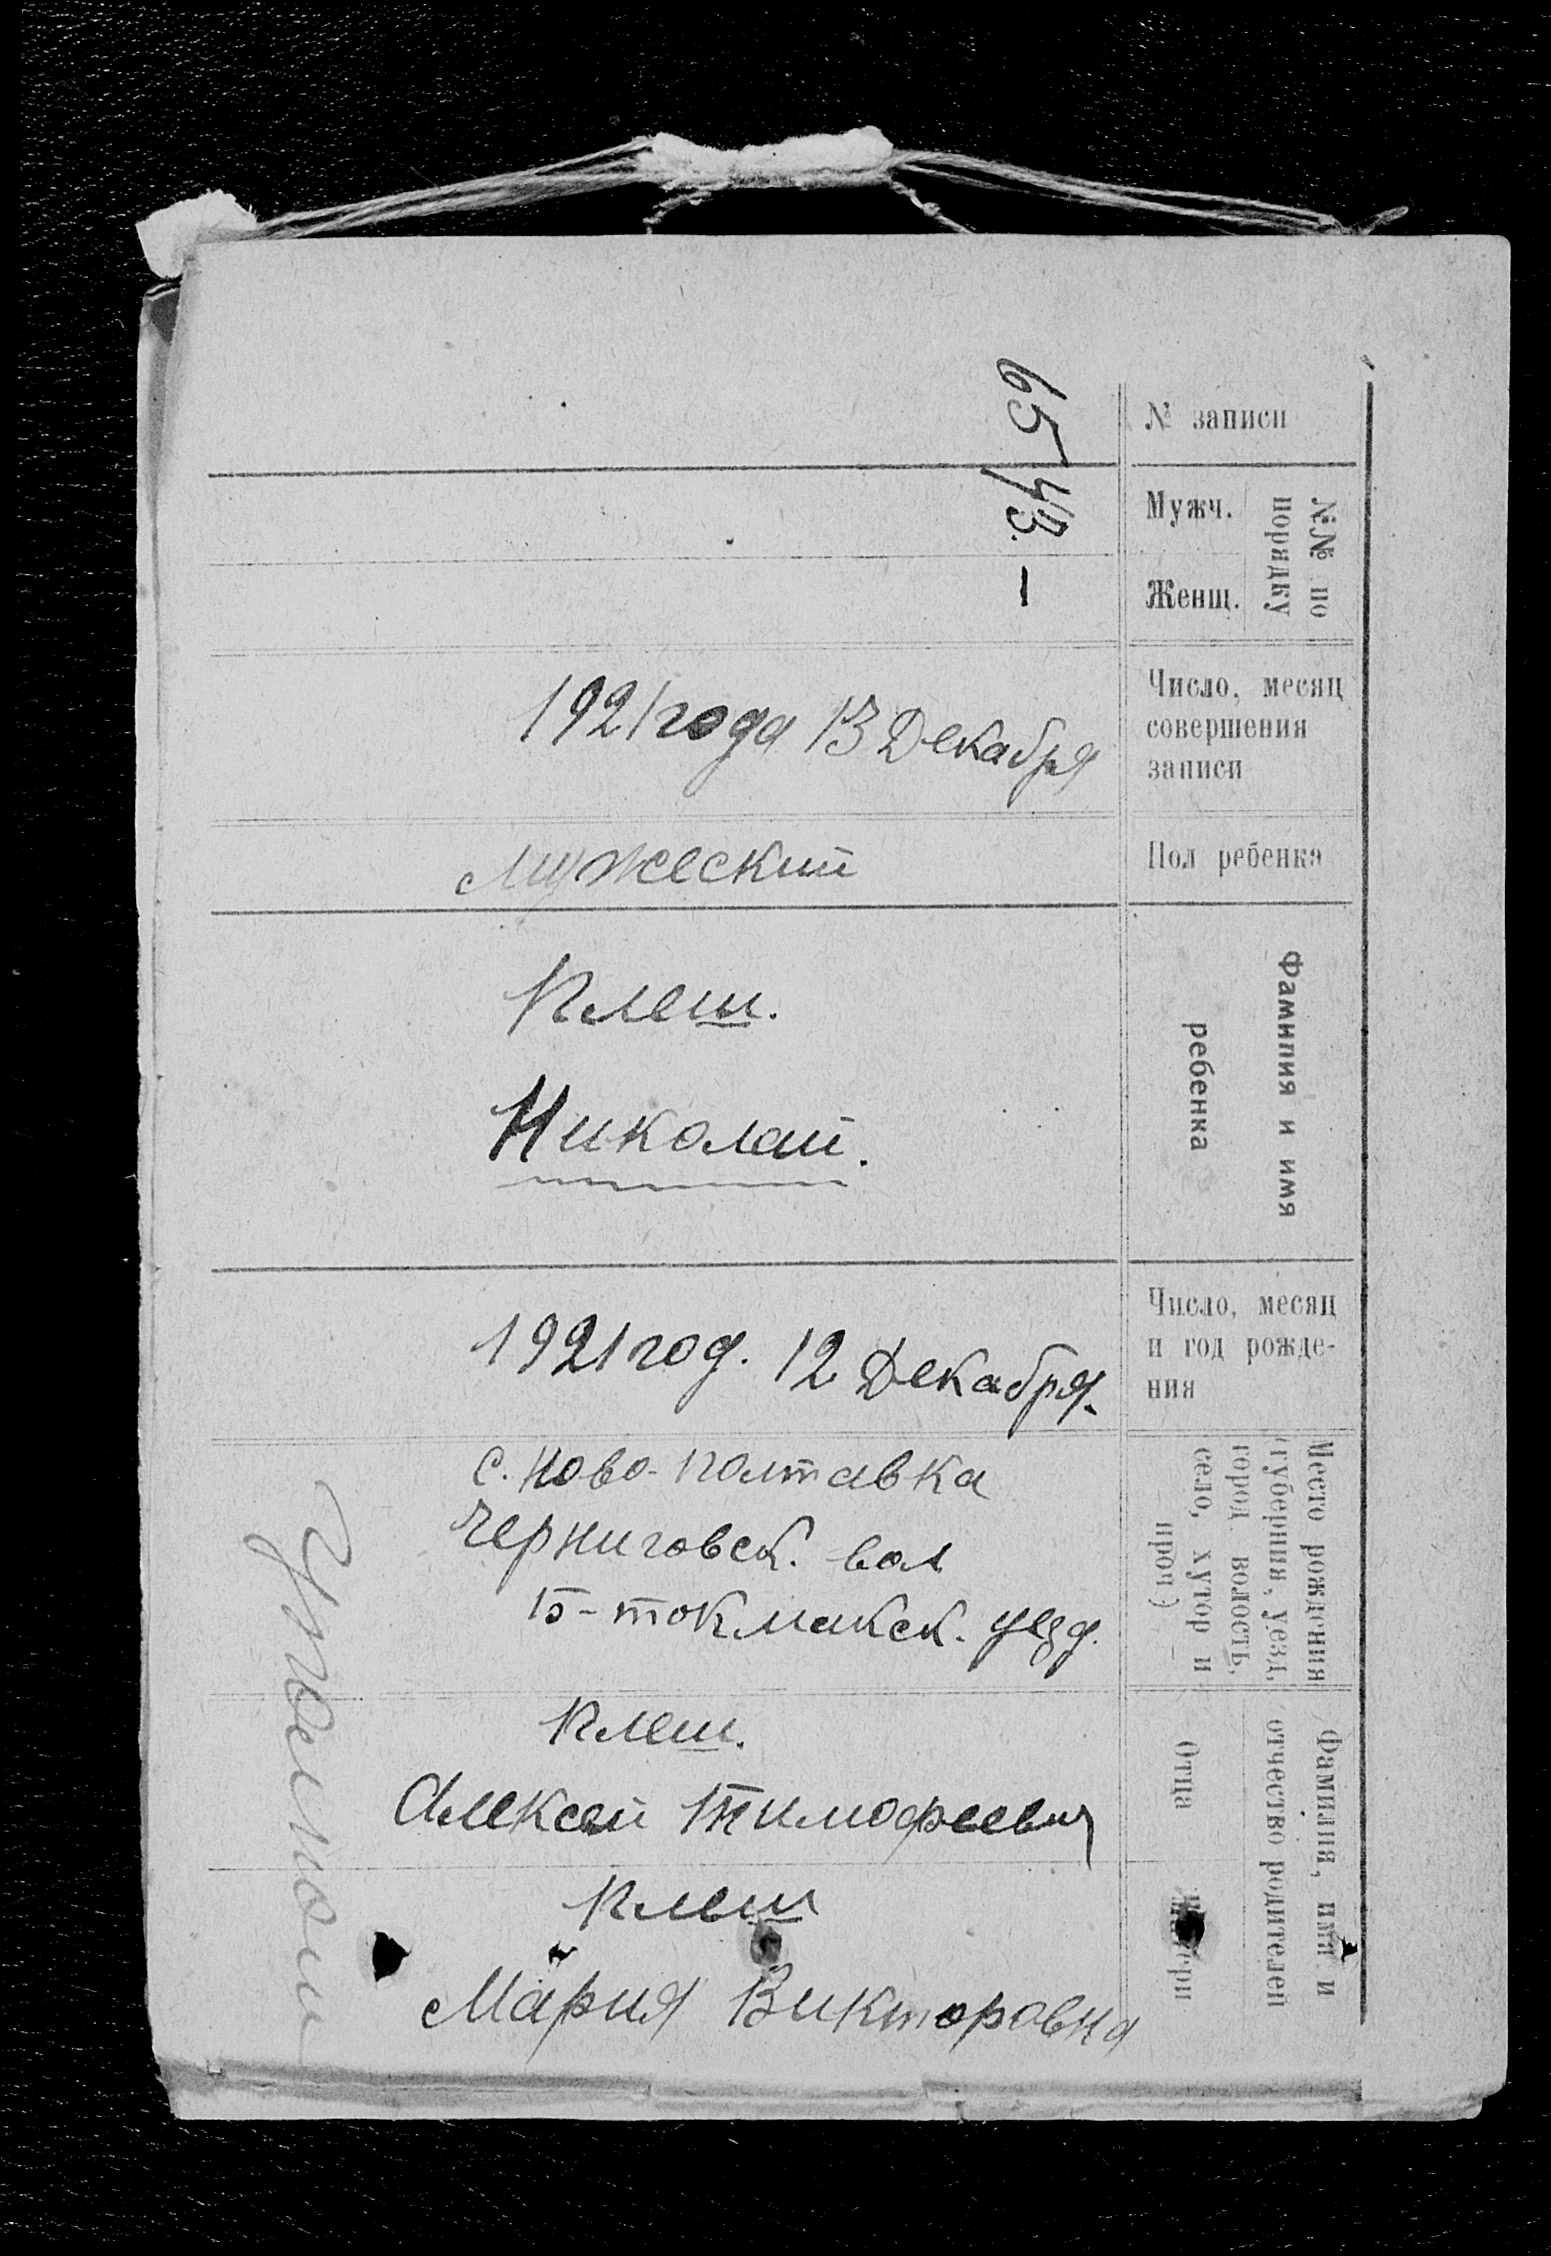 № записи
65
№№ по
порядку
Мужч.
43.
Женщ.
–
Число, месяц
совершения
записи
1921 года 13 Декабря
Пол ребенка
Мужеский
Фамилия и имя
ребенка
Клеш.
Николай.
Число, месяц
и год рожде-
ния
1921 год. 12 Декабря.
Место рождения
(губерния, уезд,
город волость,
село, хутор и
проч.)
с. Ново-Полтавка
Черниговск. вол
Б-токмакск. уезд.
Фамилия, имя и
отчество родителей
Отца
Клеш.
Алексей Тимофеевич
Матери
Клеш
Мария Викторовна